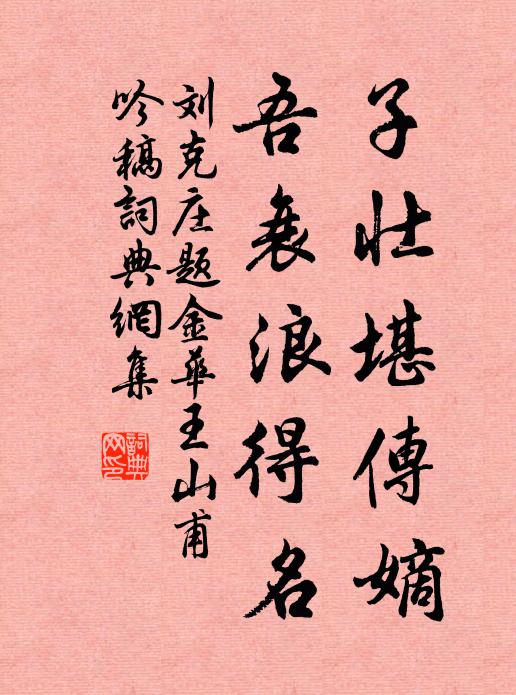 子壮堪傳嫡
吾衰浪得名
刘克庄题金华王山甫
吟稿詞典網集
詞典
网印